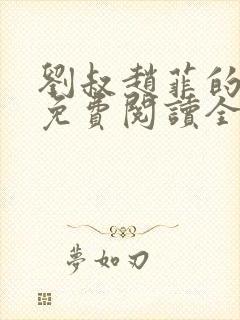 劉叔趙菲的
免費閱讀全
夢如刃